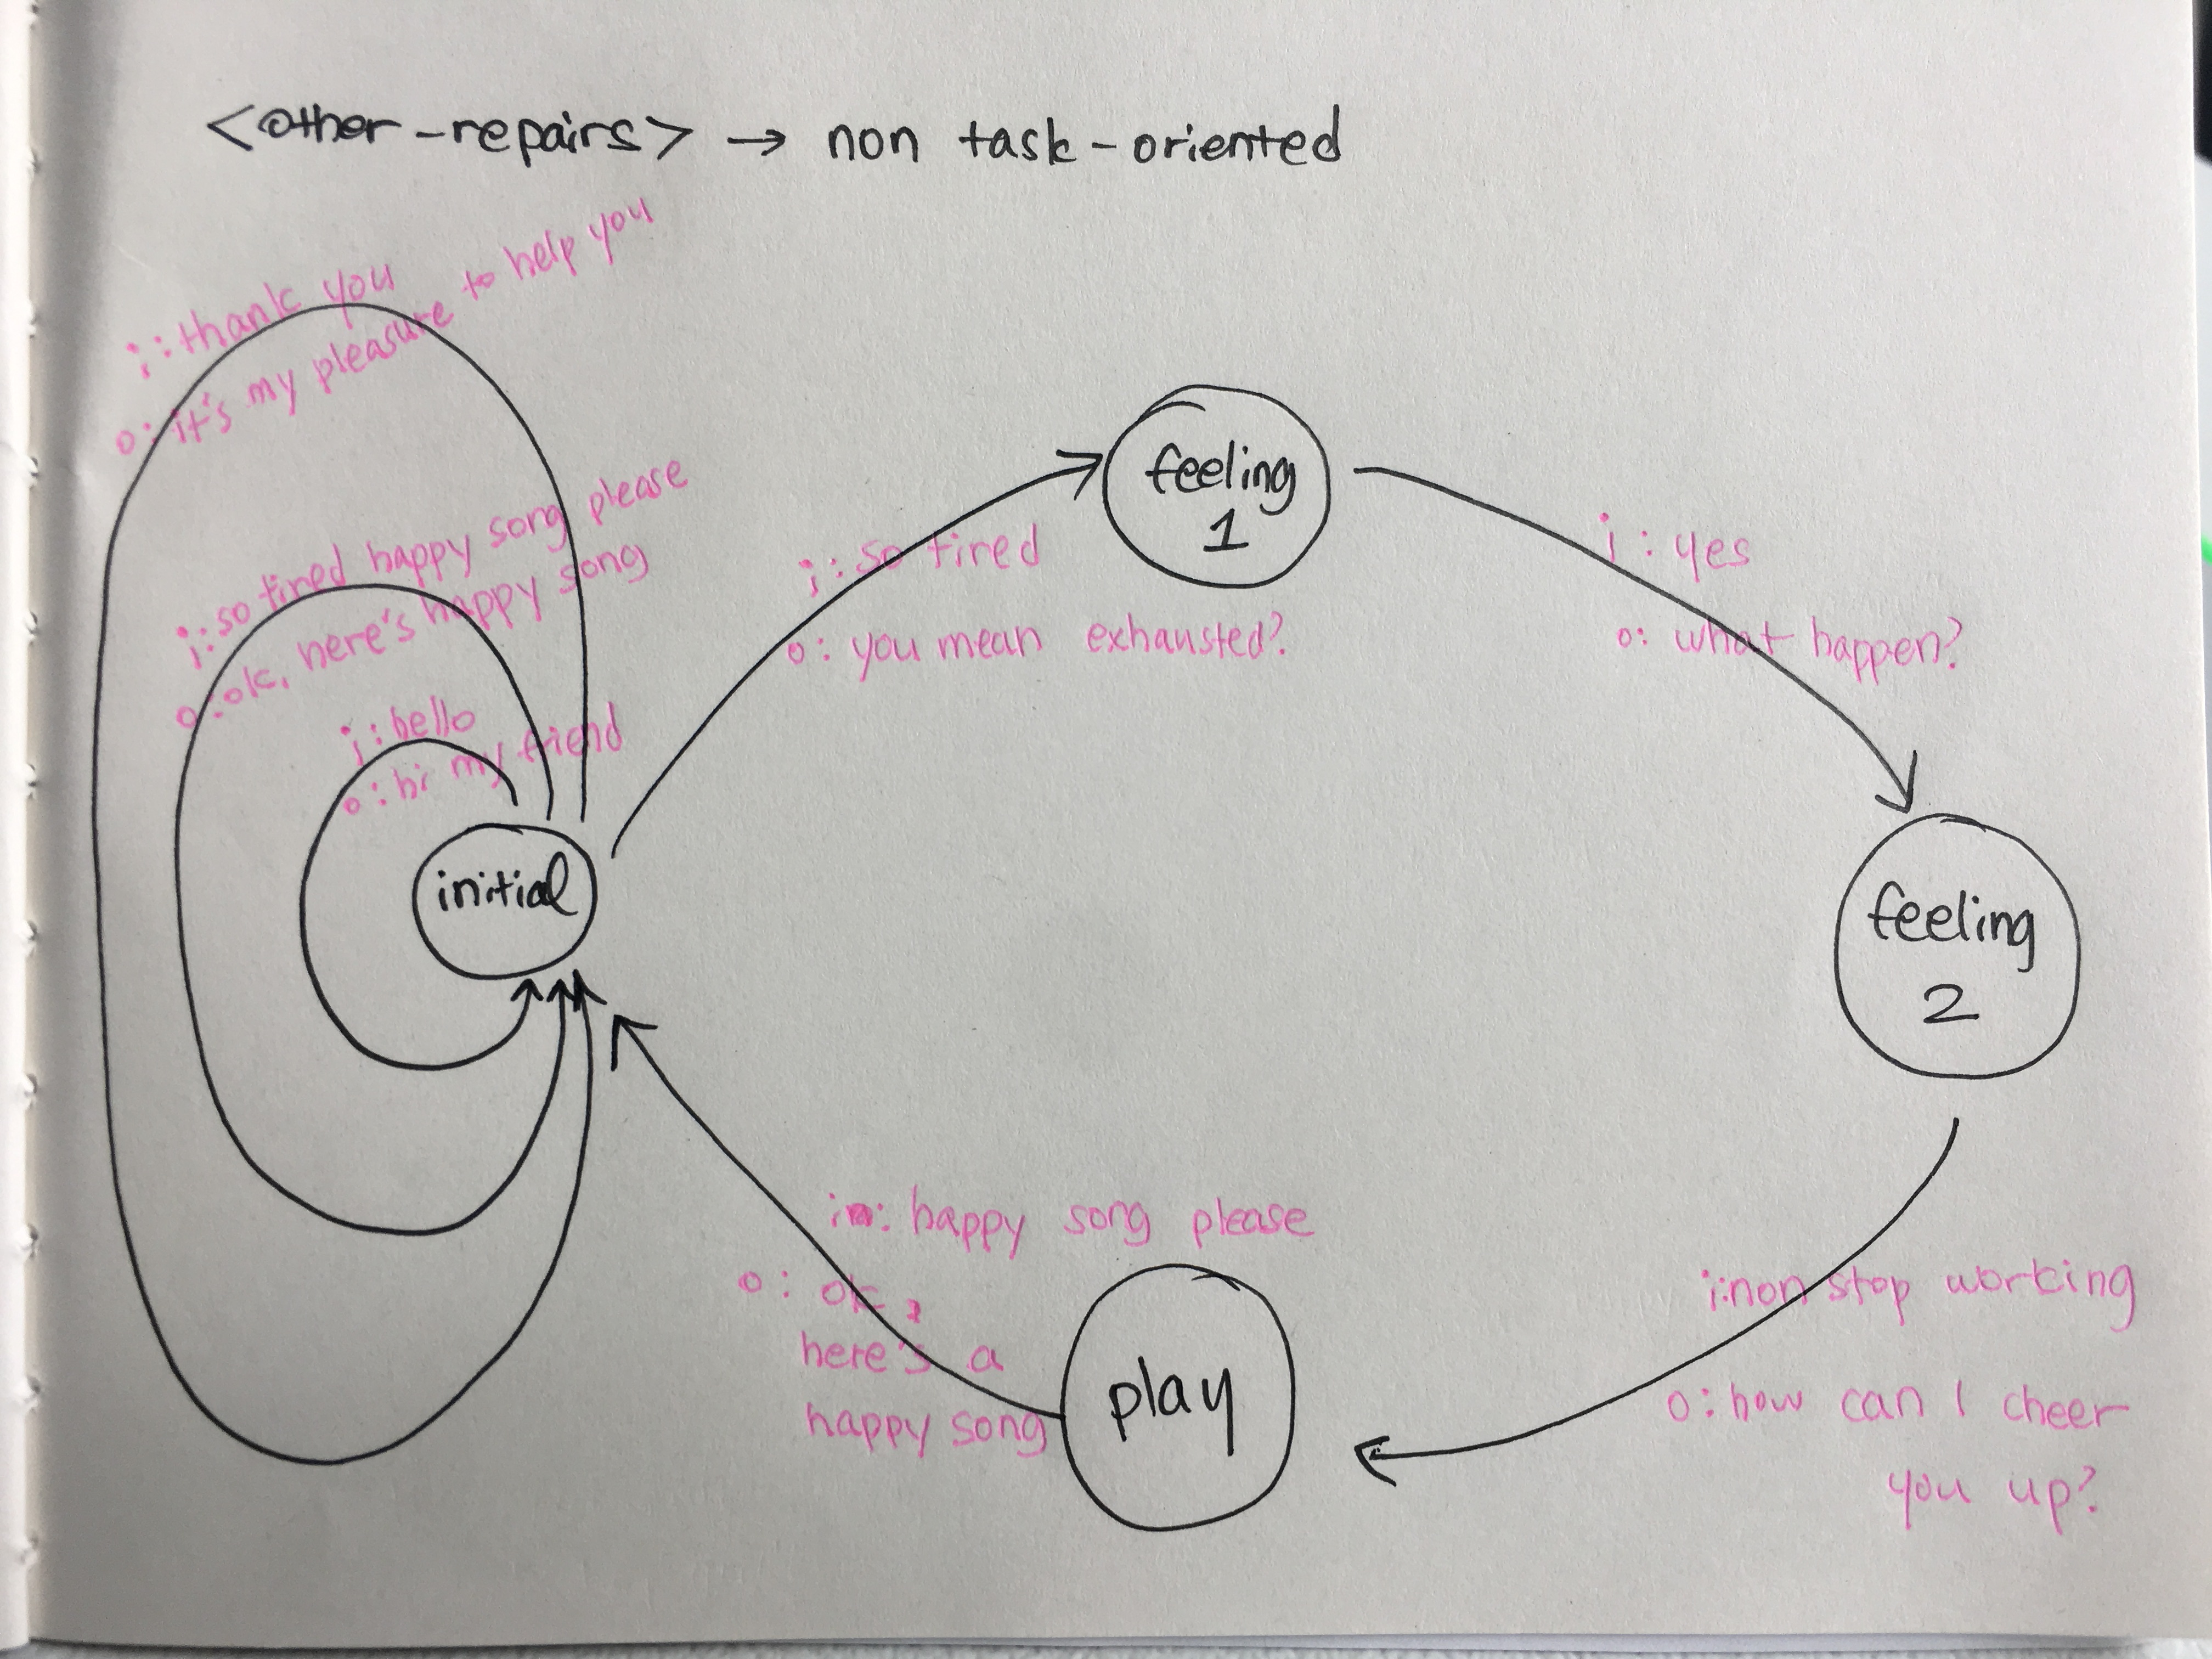 <other-repairs> → non task-oriented
i: thank you
o: it's my pleasure to help you
i: so tired happy song please
o: ok, here's happy song
i: hello
o: hi my friend
initial
feeling
1
i: so tired
o: you mean exhausted?
i: yes
o: what happen?
feeling
2
i: non stop working
o: how can I cheer
you up?
play
i: happy song please
o: ok,
here's a
happy song